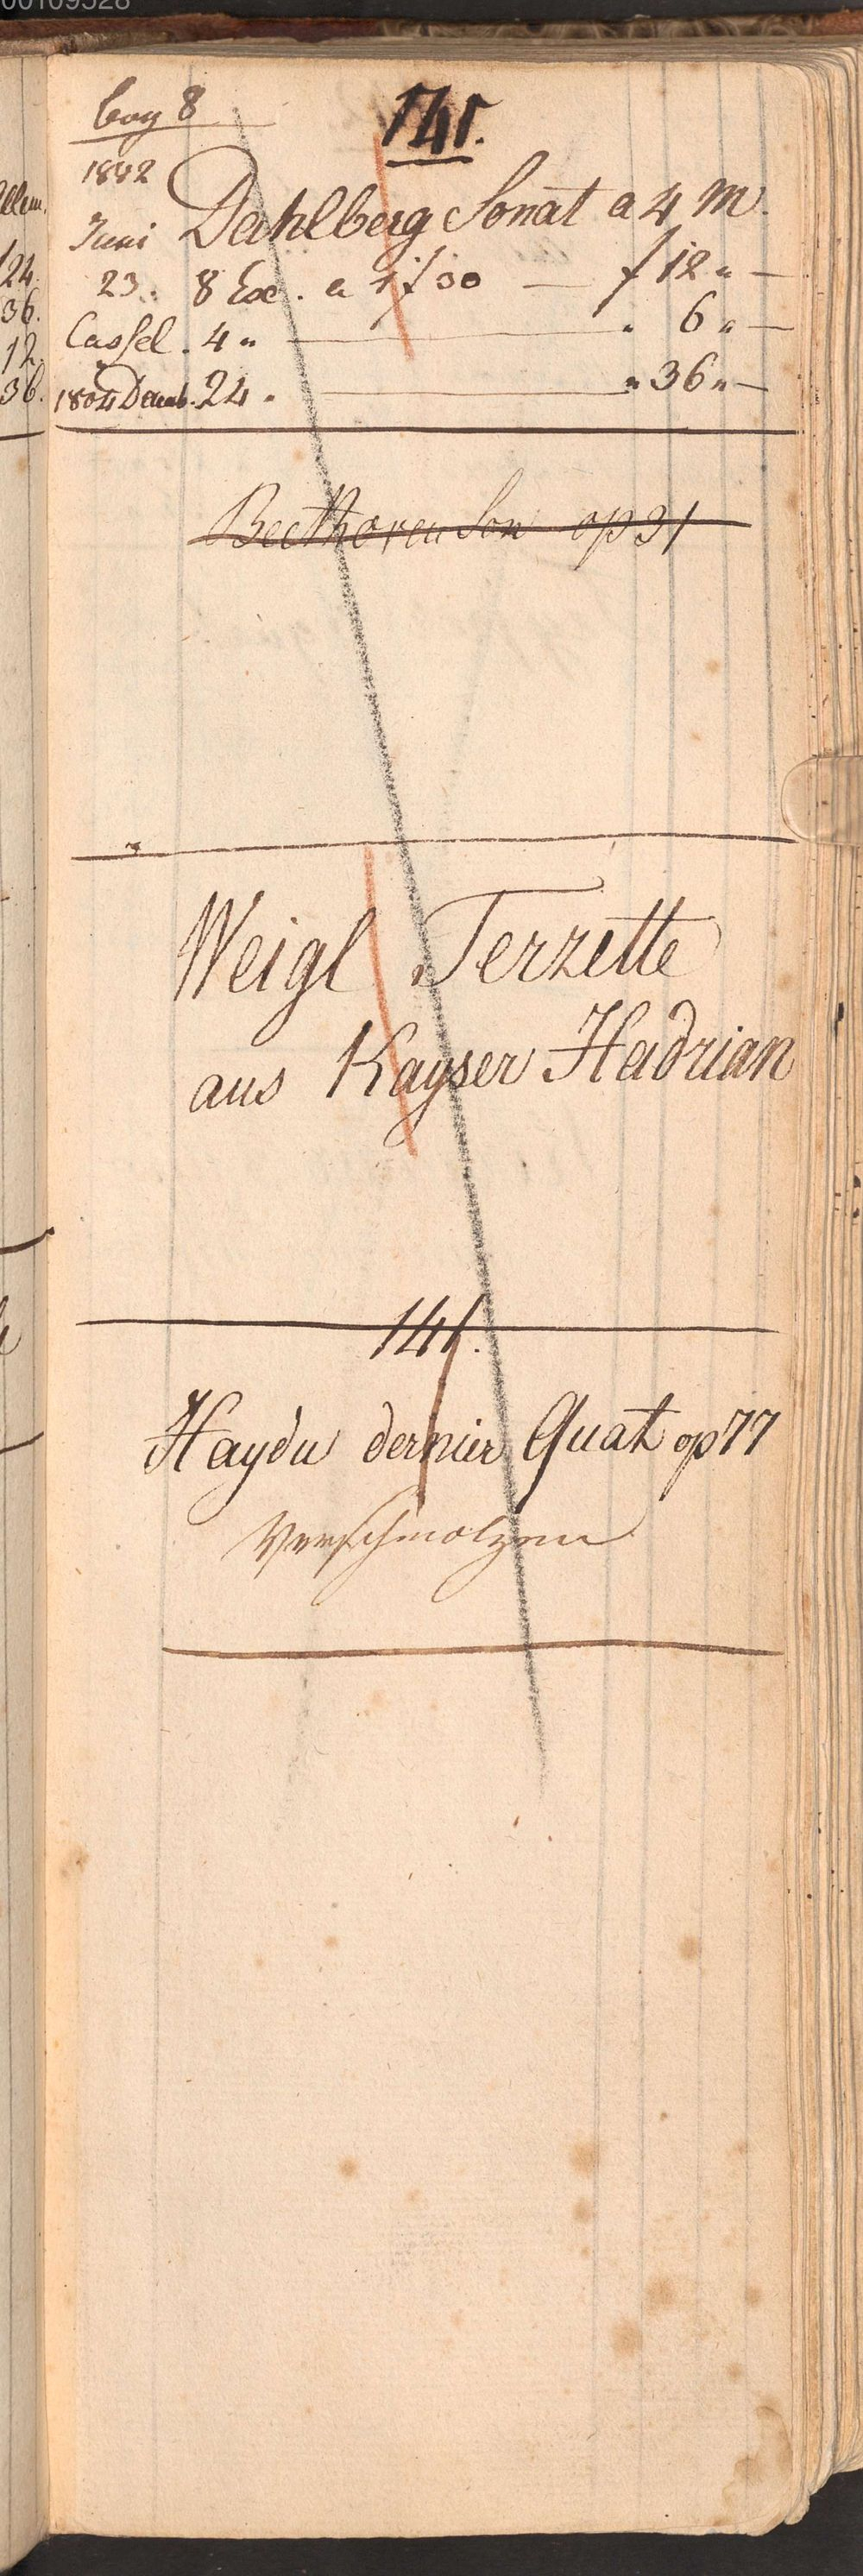 00109528
8
141.
1842
Dahlberg Sonat a 4 M.
Juni
23. 8 Ex. a 1f 30 — f 12 " —
Cassel. 4 " — " 6 " —
1804 Decemb. 24 " — " 36 " —
Beethoven Son op 31
Weigl Terzette
aus Kayser Hadrian
141.
Haydn dernier Quat op 77
Verschmolzen
24.
36.
12.
36.